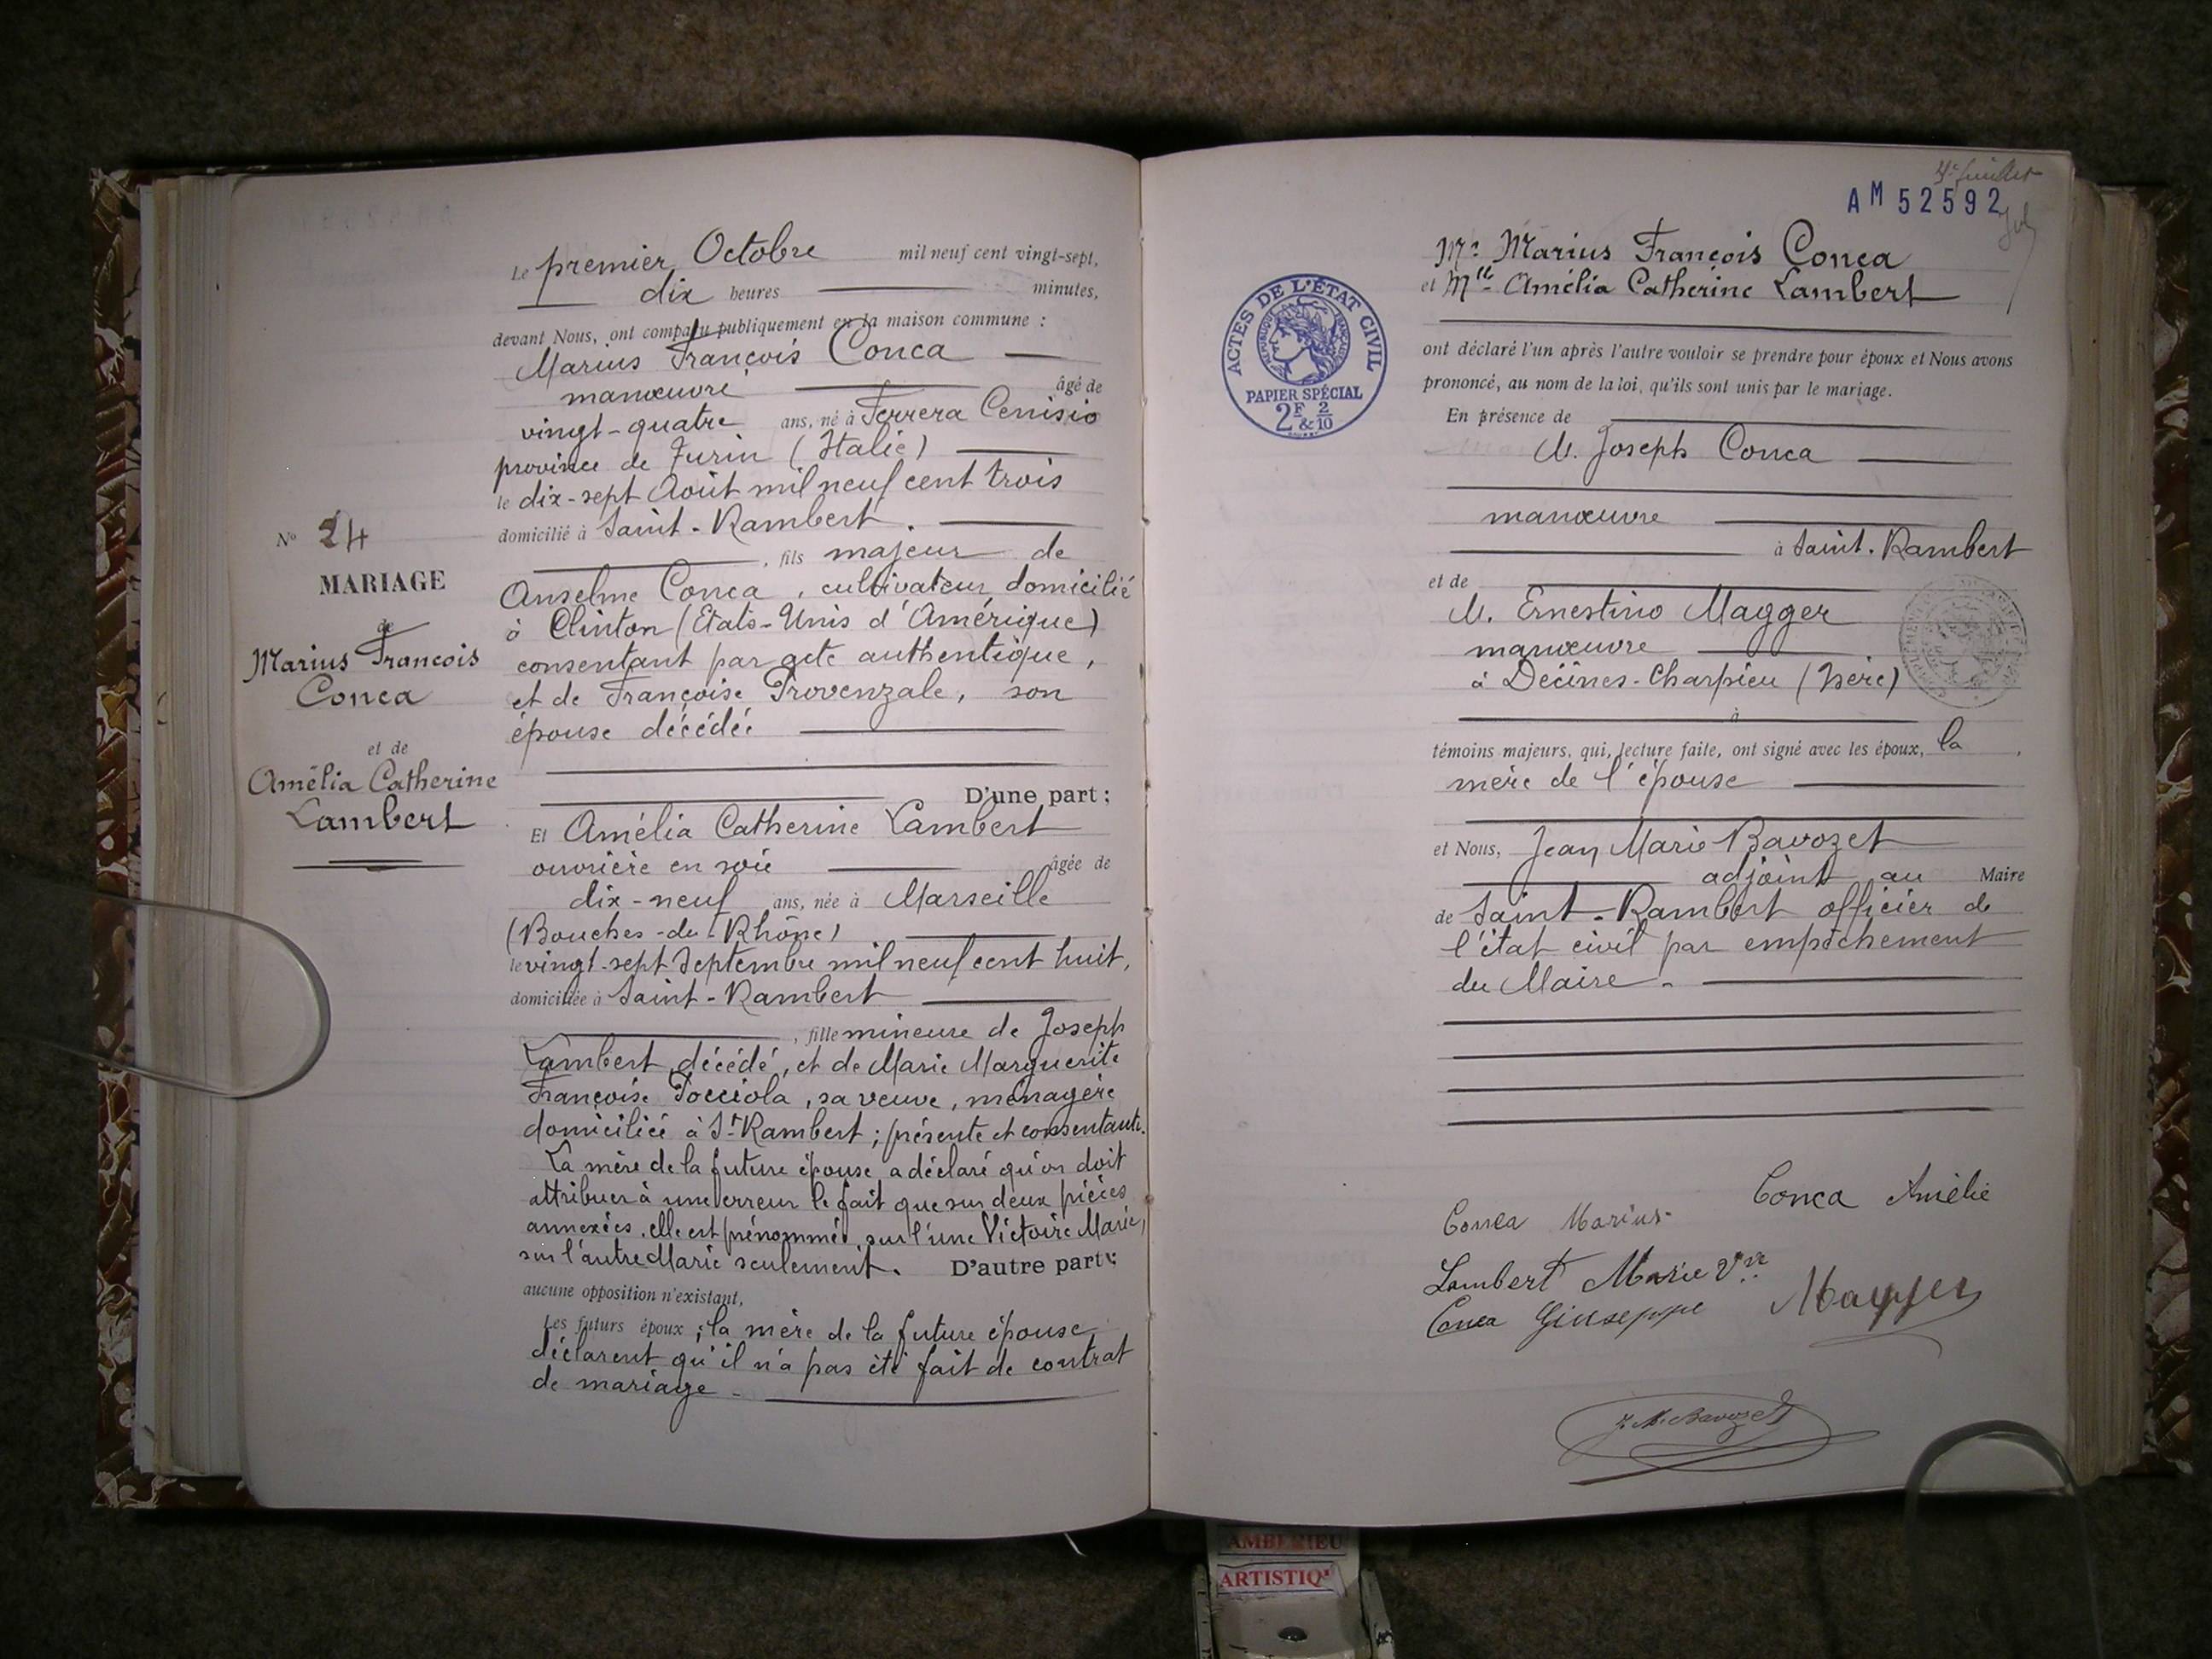 N° 24
MARIAGE
de
Marius François
Conca
et de
Amélia Catherine
Lambert
Le premier Octobre mil neuf cent vingt-sept,
dix heures minutes,
devant Nous, ont comparu publiquement en la maison commune :
Marius François Conca
manœuvre âgé de
vingt-quatre ans, né à Ferrera Cenisio
province de Turin (Italie)
le dix-sept Août mil neuf cent trois
domicilié à Saint-Rambert.
, fils majeur de
Anselme Conca, cultivateur, domicilié
à Clinton (Etats-Unis d'Amérique)
consentant par acte authentique,
et de Françoise Provenzale, son
épouse décédée
D'une part ;
Et Amélia Catherine Lambert
ouvrière en soie âgée de
dix-neuf ans, née à Marseille
(Bouches-du-Rhône)
le vingt-sept Septembre mil neuf cent huit,
domiciliée à Saint-Rambert
, fille mineure de Joseph
Lambert, décédé, et de Marie Marguerite
Françoise Pocciola, sa veuve, ménagère
domiciliée à St Rambert ; présente et consentante.
La mère de la future épouse a déclaré qu'on doit
attribuer à une erreur le fait que sur deux pièces
annexées, elle est prénommée, sur l'une Victoire Marie,
sur l'autre Marie seulement. D'autre part ;
aucune opposition n'existant,
Les futurs époux ; la mère de la future épouse
déclarent qu'il n'a pas été fait de contrat
de mariage.
AM 52592
Mr Marius François Conca
et Mlle Amélia Catherine Lambert
ACTES DE L'ÉTAT CIVIL
RÉPUBLIQUE FRANÇAISE
PAPIER SPÉCIAL
2F & 2/10
ont déclaré l'un après l'autre vouloir se prendre pour époux et Nous avons
prononcé, au nom de la loi, qu'ils sont unis par le mariage.
En présence de
M. Joseph Conca
manœuvre
à Saint-Rambert
et de
M. Ernestino Magger
manœuvre
à Décines-Charpieu (Isère)
à
témoins majeurs, qui, lecture faite, ont signé avec les époux, la ,
mère de l'épouse
et Nous, Jean Marie Bavozet
adjoint au Maire
de Saint-Rambert officier de
l'état civil par empêchement
du Maire.
Conca Marius Conca Amélie
Lambert Marie Vve
Conca Giuseppe Magger
J. M. Bavozet
AMBERIEU
ARTISTIQ